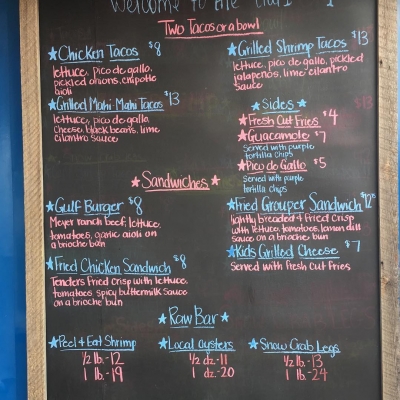 Welcome to the
Two Tacos or a bowl
★Chicken Tacos $8
lettuce, pico de gallo,
pickled onions, chipotle
aioli
★Grilled Mahi-Mahi Tacos $13
lettuce, pico de gallo,
cheese, black beans, lime
cilantro sauce
★Grilled Shrimp Tacos $13
lettuce, pico de gallo, pickled
jalapeños, lime-cilantro
sauce
★Sides★
★Fresh Cut Fries $4
★Guacamole $7
Served with purple
tortilla chips
★Pico de Gallo $5
Served with purple
tortilla chips
★Sandwiches★
★Gulf Burger $8
Meyer ranch beef, lettuce,
tomatoes, garlic aioli on
a brioche bun
★Fried Chicken Sandwich $8
Tenders fried crisp with lettuce,
tomatoes spicy buttermilk sauce
on a brioche bun
★Fried Grouper Sandwich $12
lightly breaded & fried crisp
with lettuce, tomatoes, lemon dill
sauce on a brioche bun
★Kids Grilled Cheese $7
Served with Fresh Cut Fries
★Raw Bar★
★Peel & Eat Shrimp
1/2 lb.-12
1 lb.-19
★Local oysters
1/2 dz.-11
1 dz.-20
★Snow Crab Legs
1/2 lb.-13
1 lb.-24